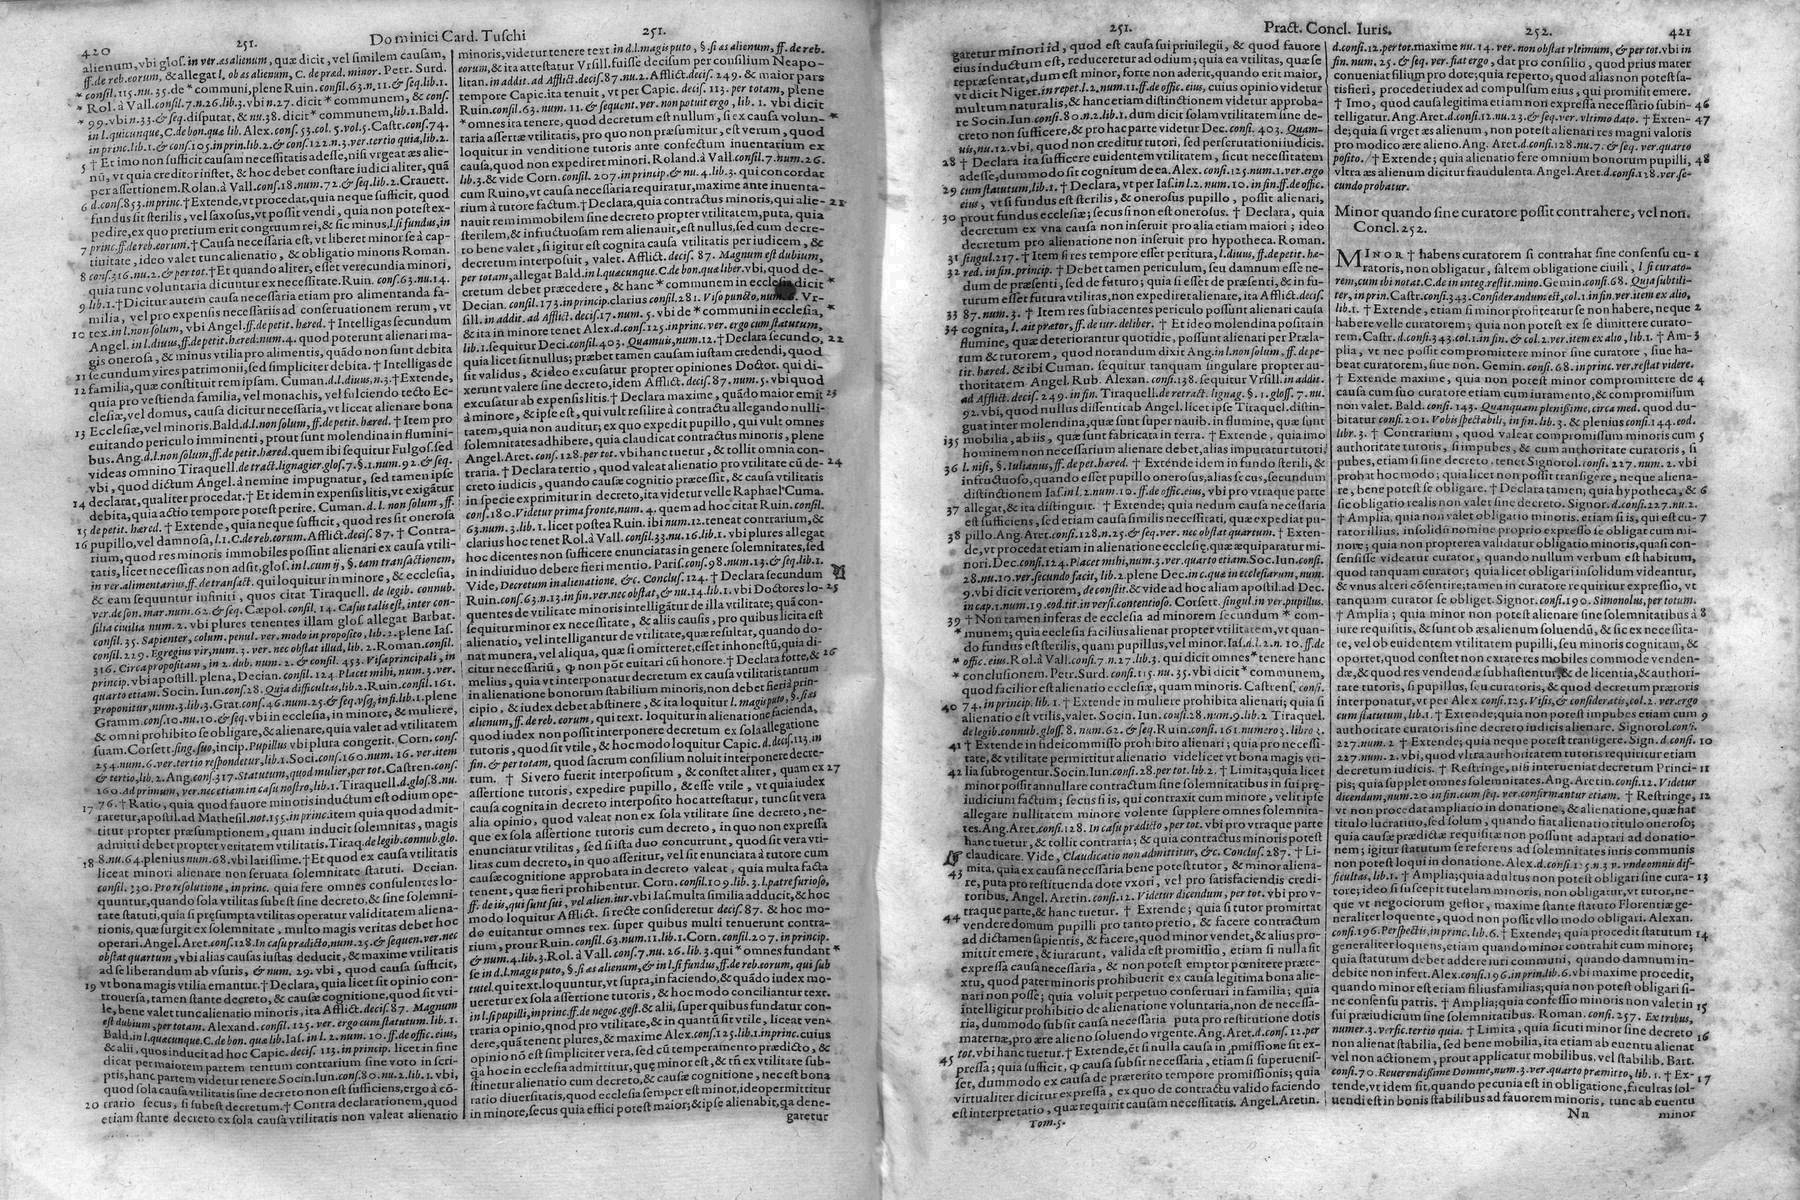 420 251. Dominici Card. Tuschi 251.
alienum, vbi glos. in ver. æs alienum, quæ dicit, vel similem causam,
ff. de reb. eorum, & allegat l. ob æs alienum, C. de præd. minor. Petr. Surd.
* consil. 115. nu. 35. de * communi, plene Ruin. consil. 63. n. 11. & seq. lib. 1.
* Rol. à Vall. consi. 7. n. 26. lib. 3. vbi n. 27. dicit * communem, & cons.
* 99. vbi n. 33. & seq. disputat, & nu. 38. dicit * communem, lib. 1. Bald.
in l. quicunque, C. de bon. quæ lib. Alex. cons. 53. col. 5. vol. 5. Castr. cons. 74.
in princ. lib. 1. & cons. 105. in prin. lib. 2. & conf. 122. n. 3. ver. tertio quia, lib. 2.
5 † Et imo non sufficit causam necessitatis adesse, nisi vrgeat æs alie-
nū, vt quia creditor instet, & hoc debet constare iudici aliter, quā
per assertionem. Rolan. à Vall. cons. 18. num. 72. & seq. lib. 2. Crauett.
6 d. cons. 853. in princ. † Extende, vt procedat, quia neque sufficit, quod
fundus sit sterilis, vel saxosus, vt possit vendi, quia non potest ex-
pedire, ex quo pretium erit congruum rei, & sic minus, l. si fundus, in
7 princ. ff. de reb. eorum. † Causa necessaria est, vt liberet minor se à cap-
tiuitate, ideo valet tunc alienatio, & obligatio minoris Roman.
8 cons. 316. nu. 2. & per tot. † Et quando aliter, esset verecundia minori,
quia tunc voluntaria dicuntur ex necessitate. Ruin. cons. 63. nu. 14.
9 lib. 1. † Dicitur autem causa necessaria etiam pro alimentanda fa-
milia, vel pro expensis necessariis ad conseruationem rerum, vt
10 tex. in l. non solum, vbi Angel. ff. de petit. hæred. † Intelligas secundum
Angel. in l. diuus, ff. de petit. hæred. num. 4. quod poterunt alienari ma-
gis onerosa, & minus vtilia pro alimentis, quādo non sunt debita
11 secundum vires patrimonii, sed simpliciter debita. † Intelligas de
12 familia, quæ constituit rem ipsam. Cuman. d. l. diuus, n. 3. † Extende,
quia pro vestienda familia, vel monachis, vel fulciendo tecto Ec-
clesiæ, vel domus, causa dicitur necessaria, vt liceat alienare bona
Ecclesiæ, vel minoris. Bald. d. l. non solum, ff. de petit. hæred. † Item pro
13 euitando periculo imminenti, prout sunt molendina in flumini-
bus. Ang. d. l. non solum, ff. de petit. hæred. quem ibi sequitur Fulgos. sed
videas omnino Tiraquell. de tract. lignagier. glos. 7. §. 1. num. 92. & seq.
vbi, quod dictum Angel. à nemine impugnatur, sed tamen ipse
declarat, qualiter procedat. † Et idem in expensis litis, vt exigātur
14 debita, quia actio tempore potest perire. Cuman. d. l. non solum, ff.
15 de petit. hæred. † Extende, quia neque sufficit, quod res sit onerosa
16 pupillo, vel damnosa, l. 1. C. de reb. eorum. Afflict. decis. 87. † Contra-
rium, quod res minoris immobiles possint alienari ex causa vtili-
tatis, licet necessitas non adsit. glos. in l. cum ij, §. eam transactionem,
in ver. alimentarius, ff. de transact. qui loquitur in minore, & ecclesia,
& eam sequuntur infiniti, quos citat Tiraquell. de legib. connub.
ver. de son. mar. num. 62. & seq. Cæpol. consil. 14. Casus talis est, inter con-
silia ciuilia num. 2. vbi plures tenentes illam glos. allegat Barbat.
consil. 35. Sapienter, colum. penul. ver. modo in proposito, lib. 2. plene Ias.
consil. 229. Egregius vir, num. 3. ver. nec obstat illud, lib. 2. Roman. consil.
316. Circa propositam, in 2. dub. num. 2. & consil. 453. Visa principali, in
princip. vbi apostill. plena, Decian. consil. 124. Placet mihi, num. 3. ver.
quarto etiam. Socin. Iun. cons. 28. Quia difficultas, lib. 2. Ruin. consil. 161.
Proponitur, num. 3. lib. 3. Grat. cons. 46. num. 25. & seq. vsq, in fi. lib. 1. plene
Gramm. cons. 10. nu. 10. & seq. vbi in ecclesia, in minore, & muliere,
& omni prohibito se obligare, & alienare, quia valer ad vtilitatem
suam. Corsett. sing. suo, incip. Pupillus vbi plura congerit. Corn. cons.
254. num. 6. ver. tertio respondetur, lib. 1. Soci. cons. 160. num. 16. ver. item
& tertio, lib. 2. Ang. cons. 317. Statutum, quod mulier, per tot. Castren. cons.
160. Ad primum, ver. nec etiam in casu nostro, lib. 1. Tiraquell. d. glos. 8. nu.
17 76. † Ratio, quia quod fauore minoris inductum est odium ope-
raretur, apostil. ad Mathesil. not. 155. in princ. item quia quod admit-
titur propter præsumptionem, quam inducit solemnitas, magis
admitti debet propter veritatem vtilitatis. Tiraq. de legib. connub. glo.
18 8. nu. 64. plenius num. 68. vbi latissime. † Et quod ex causa vtilitatis
liceat minori alienare non seruata solemnitate statuti. Decian.
consil. 330. Pro resolutione, in princ. quia fere omnes consulentes lo-
quuntur, quando sola vtilitas subest sine decreto, & sine solemni-
tate statuti, quia si præsumpta vtilitas operatur validitatem aliena-
tionis, quæ surgit ex solemnitate, multo magis veritas debet hoc
operari. Angel. Aret. cons. 128. In casu prædicto, num. 25. & sequen. ver. nec
obstat quartum, vbi alias causas iustas deducit, & maxime vtilitatis
ad se liberandum ab vsuris, & num. 29. vbi, quod causa sufficit,
19 vt bona magis vtilia emantur. † Declara, quia licet sit opinio con-
trouersa, tamen stante decreto, & causæ cognitione, quod sit vti-
le, bene valet tunc alienatio minoris, ita Afflict. decis. 87. Magnum
est dubium, per totam. Alexand. consil. 125. ver. ergo cum statutum. lib. 1.
Bald. in l. quæcunque. C. de bon. quæ lib. Ias. in l. 2. num. 10. ff. de offic. eius,
& alii, quos inducit ad hoc Capic. decis. 113. in princip. licet in fine
dicat per maiorem partem tentum contrarium sine voto in scri-
ptis, hanc partem videtur tenere Socin. Iun. cons. 80. nu. 2. lib. 1. dicens
quod sola causa vtilitatis sine decreto non est sufficiens, ergo à cō-
20 trario secus, si subest decretum. † Contra declarationem, quod
etiam stante decreto ex sola causa vtilitatis non valeat alienatio
minoris, videtur tenere text. in d. l. magis puto, §. si æs alienum, ff. de reb.
eorum, & ita attestatur Vrsill. fuisse decisum per consilium Neapo-
litan. in addit. ad Afflict. decis. 87. nu. 2. Afflict. decis. 249. & maior pars
tempore Capic. ita tenuit, vt per Capic. decis. 113. per totam, plene
Ruin. consil. 63. num. 11. & sequent. ver. non potuit ergo, lib. 1. vbi dicit
* omnes ita tenere, quod decretum est nullum, si ex causa volun- *
taria assertæ vtilitatis, pro quo non præsumitur, est verum, quod
loquitur in venditione tutoris ante confectum inuentarium ex
causa, quod non expediret minori. Roland. à Vall. consil. 7. num. 26.
lib. 3. & vide Corn. consil. 207. in princip. & nu. 4. lib. 3. qui concordat
cum Ruino, vt causa necessaria requiratur, maxime ante inuenta-
rium à tutore factum. † Declara, quia contractus minoris, qui alie- 21
nauit rem immobilem sine decreto propter vtilitatem, puta, quia
sterilem, & infructuosam rem alienauit, est nullus, sed cum decre-
to bene valet, si igitur est cognita causa vtilitatis per iudicem, &
decretum interposuit, valet. Afflict. decis. 87. Magnum est dubium,
per totam, allegat Bald. in l. quæcunque. C. de bon. quæ liber. vbi, quod de-
cretum debet præcedere, & hanc * communem in ecclesia dicit *
Decian. consil. 173. in princip. clarius consil. 281. Viso puncto, num. 6. Vr-
sill. in addit. ad Afflict. decis. 17. num. 5. vbi de * communi in ecclesia, *
& ita in minore tenet Alex. d. cons. 125. in princ. ver. ergo cum statutum,
lib. 1. sequitur Deci. consil. 403. Quamuis, num. 12. † Declara secundo, 22
quia licet sit nullus; præbet tamen causam iustam credendi, quod
sit validus, & ideo excusatur propter opiniones Doctor. qui di-
xerunt valere sine decreto, idem Afflict. decis. 87. num. 5. vbi quod
excusatur ab expensis litis. † Declara maxime, quādo maior emit 23
à minore, & ipse est, qui vult resilire à contractu allegando nulli-
tatem, quia non auditur; ex quo expedit pupillo, qui vult omnes
solemnitates adhibere, quia claudicat contractus minoris, plene
Angel. Aret. cons. 128. per tot. vbi hanc tuetur, & tollit omnia con-
traria. † Declara tertio, quod valeat alienatio pro vtilitate cū de- 24
creto iudicis, quando causæ cognitio præcessit, & causa vtilitatis
in specie exprimitur in decreto, ita videtur velle Raphael Cuma.
cons. 180. Videtur prima fronte, num. 4. quem ad hoc citat Ruin. consil.
63. num. 3. lib. 1. licet postea Ruin. ibi num. 12. teneat contrarium, &
clarius hoc tenet Rol. à Vall. consil. 33. nu. 16. lib. 1. vbi plures allegat
hoc dicentes non sufficere enunciatas in genere solemnitates, sed
in indiuiduo debere fieri mentio. Paris. cons. 98. num. 13. & seq. lib. 1.
Vide, Decretum in alienatione, &c. Conclus. 124. † Declara secundum
Ruin. cons. 63. n. 13. in fin. ver. nec obstat, & nu. 14. lib. 1. vbi Doctores lo- 25
quentes de vtilitate minoris intelligātur de illa vtilitate, quā con-
sequitur minor ex necessitate, & aliis causis, pro quibus licita est
alienatio, vel intelligantur de vtilitate, quæ resultat, quando do-
nat munera, vel aliqua, quæ si omitteret, esset inhonestū, quia di-
citur necessariū, ꝙ non pōt euitari cū honore. † Declara forte, & 26
melius, quia vt interponatur decretum ex causa vtilitatis tantum
in alienatione bonorum stabilium minoris, non debet fieri à prin-
cipio, & iudex debet abstinere, & ita loquitur l. magis puto, §. si æs
alienum, ff. de reb. eorum, qui text. loquitur in alienatione facienda,
quod iudex non possit interponere decretum ex sola allegatione
tutoris, quod sit vtile, & hoc modo loquitur Capic. d. decis. 113. in
fin. & per totam, quod sacrum consilium noluit interponere decre-
tum. † Si vero fuerit interpositum, & constet aliter, quam ex 27
assertione tutoris, expedire pupillo, & esse vtile, vt quia iudex
causa cognita in decreto interposito hoc attestatur, tunc sit vera
alia opinio, quod valeat non ex sola vtilitate sine decreto, ne-
que ex sola assertione tutoris cum decreto, in quo non expressa
enunciatur vtilitas, sed si ista duo concurrunt, quod sit vera vti-
litas cum decreto, in quo asseritur, vel sit enunciata à tutore cum
causæ cognitione approbata in decreto valeat, quia multa facta
tenent, quæ fieri prohibentur. Corn. cons. 109. lib. 3. l. patre furioso,
ff. de iis, qui sunt sui, vel alien. iur. vbi Ias. multa similia adducit, & hoc
modo loquitur Afflict. si recte consideretur decis. 87. & hoc mo-
do euitantur omnes tex. super quibus multi tenuerunt contra-
rium, prout Ruin. consil. 63. num. 11. lib. 1. Corn. consil. 207. in princip.
& num. 4. lib. 3. Rol. à Vall. cons. 7. nu. 26. lib. 3. qui * omnes fundant *
se in d. l. magis puto, §. si æs alienum, & in l. si fundus, ff. de reb. eorum, qui sub
tutel. qui text. loquuntur, vt supra, in faciendo, & quādo iudex mo-
ueretur ex sola assertione tutoris, & hoc modo conciliantur text.
in l. si pupilli, in princ. ff. de negoc. gest. & alii, super quibus fundatur con-
traria opinio, quod pro vtilitate, & in quantū sit vtile, liceat ven-
dere, quā tenent plures, & maxime Alex. cons. 125. lib. 1. in princ. cuius
opinio nō est simpliciter vera, sed cū temperamento prædicto, &
qa hoc in ecclesia admittitur, quę minor est, & tñ ex vtilitate sub-
stinetur alienatio cum decreto, & causæ cognitione, nec est bona
ratio diuersitatis, quod ecclesia semper est minor, ideo permittitur
in minore, secus quia effici potest maior; & ipse alienabit, qa dene-
garetur
251. Pract. Concl. Iuris. 252. 421
garetur minori id, quod est causa sui priuilegii, & quod fauore
eius inductum est, reduceretur ad odium; quia ea vtilitas, quæ se
repræsentat, dum est minor, forte non aderit, quando erit maior,
vt dicit Niger. in repet. l. 2. num. 11. ff. de offic. eius, cuius opinio videtur
multum naturalis, & hanc etiam distinctionem videtur approba-
re Socin. Iun. cons. 80. n. 2. lib. 1. dum dicit solam vtilitatem sine de-
creto non sufficere, & pro hac parte videtur Dec. consi. 403. Quam-
uis, nu. 12. vbi, quod non creditur tutori, sed perscrutationi iudicis.
28 † Declara ita sufficere euidentem vtilitatem, sicut necessitatem
adesse, dummodo sit cognitum de ea. Alex. consi. 125. num. 1. ver. ergo
29 cum statutum, lib. 1. † Declara, vt per Ias. in l. 2. num. 10. in fin. ff. de offic.
eius, vt si fundus est sterilis, & onerosus pupillo, possit alienari,
30 prout fundus ecclesiæ; secus si non est onerosus. † Declara, quia
decretum ex vna causa non inseruit pro alia etiam maiori; ideo
decretum pro alienatione non inseruit pro hypotheca. Roman.
31 singul. 217. † Item si res tempore esset peritura, l. diuus, ff. de petit. hæ-
32 red. in fin. princip. † Debet tamen periculum, seu damnum esse ne-
dum de præsenti, sed de futuro; quia si esset de præsenti, & in fu-
turum esset futura vtilitas, non expediret alienare, ita Afflict. decis.
33 87. num. 3. † Item res subiacentes periculo possunt alienari causa
34 cognita, l. ait prætor, ff. de iur. deliber. † Et ideo molendina posita in
flumine, quæ deteriorantur quotidie, possunt alienari per Præla-
tum & tutorem, quod notandum dixit Ang. in l. non solum, ff. de pe-
tit. hæred. & ibi Cuman. sequitur tanquam singulare propter au-
thoritatem Angel. Rub. Alexan. consi. 138. sequitur Vrsill. in addit.
ad Afflict. decis. 249. in fin. Tiraquell. de retract. lignag. §. 1. gloss. 7. nu.
92. vbi, quod nullus dissentit ab Angel. licet ipse Tiraquel. distin-
guat inter molendina, quæ sunt super nauib. in flumine, quæ sunt
35 mobilia, ab iis, quæ sunt fabricata in terra. † Extende, quia imo
hominem non necessarium alienare debet, alias imputatur tutori,
36 l. nisi, §. Iulianus, ff. de pet. hæred. † Extende idem in fundo sterili, &
infructuoso, quando esset pupillo onerosus, alias secus, secundum
distinctionem Ias. in l. 2. num. 10. ff. de offic. eius, vbi pro vtraque parte
37 allegat, & ita distinguit. † Extende; quia nedum causa necessaria
est sufficiens, sed etiam causa similis necessitati, quæ expediat pu-
38 pillo. Ang. Aret. consi. 128. n. 25. & seq. ver. nec obstat quartum. † Exten-
de, vt procedat etiam in alienatione ecclesię, quæ æquiparatur mi-
nori. Dec. consi. 124. Placet mihi, num. 3. ver. quarto etiam. Soc. Iun. consi.
28. nu. 10. ver. secundo facit, lib. 2. plene Dec. in c. quæ in ecclesiarum, num.
9. vbi dicit veriorem, de constit. & vide ad hoc aliam apostil. ad Dec.
in cap. 1. num. 19. eod. tit. in versi. contentioso. Corsett. singul. in ver. pupillus.
39 † Non tamen inferas de ecclesia ad minorem secundum * com- *
* munem; quia ecclesia facilius alienat propter vtilitatem, vt quan-
do fundus est sterilis, quam pupillus, vel minor. Ias. d. l. 2. n. 10. ff. de
* offic. eius. Rol. à Vall. consi. 7. n. 27. lib. 3. qui dicit omnes * tenere hanc
* conclusionem. Petr. Surd. consi. 115. nu. 35. vbi dicit * communem,
quod facilior est alienatio ecclesiæ, quam minoris. Castrens. consi.
40 74. in princip. lib. 1. † Extende in muliere prohibita alienari; quia si
alienatio est vtilis, valet. Socin. Iun. consi. 28. num. 9. lib. 2. Tiraquel.
de legib. connub. gloss. 8. num. 62. & seq. Ruin. consi. 161. numero 3. libro 3.
41 † Extende in fideicommisso prohibito alienari; quia pro necessi-
tate, & vtilitate permittitur alienatio videlicet vt bona magis vti-
42 lia subrogentur. Socin. Iun. consi. 28. per tot. lib. 2. † Limita; quia licet
minor possit annullare contractum sine solemnitatibus in sui præ-
iudicium factum; secus si is, qui contraxit cum minore, velit ipse
allegare nullitatem minore volente supplere omnes solemnita-
tes. Ang. Aret. consi. 128. In casu prædicto, per tot. vbi pro vtraque parte
hanc tuetur, & tollit contraria; & quia contractus minoris potest
claudicare. Vide, Claudicatio non admittitur, &c. Concluf. 287. † Li-
43 mita, quia ex causa necessaria bene potest tutor, & minor aliena-
re, puta pro restituenda dote vxori, vel pro satisfaciendis credi-
toribus. Angel. Aretin. consi. 12. Videtur dicendum, per tot. vbi pro v-
traque parte, & hanc tuetur. † Extende; quia si tutor promittat
44 vendere domum pupilli pro tanto pretio, & facere contractum
ad dictamen sapientis, & facere, quod minor vendet, & alius pro-
mittit emere, & iurarunt, valida est promissio, etiam si nulla sit
expressa causa necessaria, & non potest emptor pœnitere præte-
xtu, quod pater minoris prohibuerit ex causa legitima bona alie-
nari non posse; quia voluit perpetuo conseruari in familia; quia
intelligitur prohibitio de alienatione voluntaria, non de necessa-
ria, dummodo subsit causa necessaria puta pro restitutione dotis
maternæ, pro ære alieno soluendo vrgente. Ang. Aret. d. consi. 12. per
45 tot. vbi hanc tuetur. † Extende, et si nulla causa in promissione sit ex-
pressa; quia sufficit, ꝙ causa subsit necessaria, etiam si superuenis-
set, dummodo ex causa de præterito tempore promissionis; quia
virtualiter dicitur expressa, ex quo de contractu valido faciendo
est interpretatio, quæ requirit causam necessitatis. Angel. Aretin.
Tom. 5.
d. consi. 12. per tot. maxime nu. 14. ver. non obstat vltimum, & per tot. vbi in
fin. num. 25. & seq. ver. fiat ergo, dat pro consilio, quod prius mater
conueniat filium pro dote; quia reperto, quod alias non potest sa-
tisfieri, procedet iudex ad compulsum eius, qui promisit emere.
† Imo, quod causa legitima etiam non expressa necessario subin- 46
telligatur. Ang. Aret. d. consi. 12. nu. 23. & seq. ver. vltimo dato. † Exten- 47
de; quia si vrget æs alienum, non potest alienari res magni valoris
pro modico ære alieno. Ang. Aret. d. consi. 128. nu. 7. & seq. ver. quarto
posito. † Extende; quia alienatio fere omnium bonorum pupilli, 48
vltra æs alienum dicitur fraudulenta. Angel. Aret. d. consi. 128. ver. se-
cundo probatur.
Minor quando sine curatore possit contrahere, vel non.
Concl. 252.
MINOR † habens curatorem si contrahat sine consensu cu- 1
ratoris, non obligatur, saltem obligatione ciuili, l. si curato-
rem, cum ibi notat. C. de in integ. restit. mino. Gemin. consi. 68. Quia subtili-
ter, in prin. Castr. consi. 343. Considerandum est, col. 1. in fin. ver. item ex alio,
lib. 1. † Extende, etiam si minor profiteatur se non habere, neque 2
habere velle curatorem; quia non potest ex se dimittere curato-
rem. Castr. d. consi. 343. col. 1. in fin. & col. 2. ver. item ex alio, lib. 1. † Am- 3
plia, vt nec possit compromittere minor sine curatore, siue ha-
beat curatorem, siue non. Gemin. consi. 68. in princ. ver. restat videre.
† Extende maxime, quia non potest minor compromittere de 4
causa cum suo curatore etiam cum iuramento, & compromissum
non valet. Bald. consi. 143. Quanquam plenissime, circa med. quod du-
bitatur consi. 201. Vobis spectabili, in fin. lib. 3. & plenius consi. 144. eod.
libr. 3. † Contrarium, quod valeat compromissum minoris cum 5
authoritate tutoris, si impubes, & cum authoritate curatoris, si
pubes, etiam si sine decreto. tenet Signorol. consi. 227. num. 2. vbi
probat hoc modo; quia licet non possit transigere, neque aliena-
re, bene potest se obligare. † Declara tamen; quia hypotheca, & 6
sic obligatio realis non valet sine decreto. Signor. d. consi. 227. nu. 2.
† Amplia, quia non valet obligatio minoris. etiam si is, qui est cu- 7
rator illius, insolidū nomine proprio expresso se obligat cum mi-
nore; quia non propterea validatur obligatio minoris, quasi con-
sensisse videatur curator, quando nullum verbum est habitum,
quod tanquam curator; quia licet obligari insolidum videantur,
& vnus alteri cōsentire; tamen in curatore requiritur expresso, vt
tanquam curator se obliget. Signor. consi. 190. Simonolus, per totum.
† Amplia; quia minor non potest alienare sine solemnitatibus à 8
iure requisitis, & sunt ob æs alienum soluendū, & sic ex necessita-
te, vel ob euidentem vtilitatem pupilli, seu minoris cognitam, &
oportet, quod constet non extare res mobiles commode venden-
dæ, & quod res vendendæ subhastentur, & de licentia, & authori-
tate tutoris, si pupillus, seu curatoris, & quod decretum prætoris
interponatur, vt per Alex consi. 125. Visis, & consideratis, col. 2. ver. ergo
cum statutum, lib. 1. † Extende; quia non potest impubes etiam cum 9
authoritate curatoris sine decreto iudicis alienare. Signorol. consi.
227. num. 2 † Extende; quia neque potest transigere. Sign. d. consi. 10
227. num. 2. vbi, quod vltra authoritatem tutoris requiritur etiam
decretum iudicis. † Restringe, nisi interueniat decretum Princi- 11
pis; quia supplet omnes solemnitates. Ang. Aretin. consi. 12. Videtur
dicendum, num. 20 in fin. cum seq. ver. confirmantur etiam. † Restringe, 12
vt non procedat ampliatio in donatione, & alienatione, quæ fit
titulo lucratiuo, sed solum, quando fiat alienatio titulo oneroso;
quia causæ prædictæ requisitæ non possunt adaptari ad donatio-
nem; igitur statutum se referens ad solemnitates iuris communis
non potest loqui in donatione. Alex. d. consi. 125. n. 3 ver. vnde omnis dif-
ficultas, lib. 1. † Amplia; quia adultus non potest sine cura- 13
tore; ideo si suscepit tutelam minoris, non obligatur, vt tutor, ne-
que vt negociorum gestor, maxime stante statuto Florentiæ ge-
neraliter loquente, quod non possit vllo modo obligari. Alexan.
consi. 196. Perspectis, in princ. lib. 6. † Extende; quia procedit statutum 14
generaliter loquens, etiam quando minor contrahit cum minore;
quia statutum debet addere iuri communi, quando damnum in-
debite non infert. Alex. consi. 196. in prin. lib. 6. vbi maxime procedit,
quando minor est etiam filiusfamilias; quia non potest obligari si-
ne consensu patris. † Amplia; quia confessio minoris non valet in 15
sui præiudicium sine solemnitatibus. Roman. consi. 257. Ex tribus,
numer. 3. versic. tertio quia. † Limita, quia sicuti minor sine decreto 16
non alienat stabilia, sed bene mobilia, ita etiam ab euentu alienat
vel non actionem, prout applicatur mobilibus, vel stabilib. Bart.
consi. 70. Reuerendissime Domine, num. 3. ver. quarto præmitto, lib. 1. † Ex- 17
tende, vt idem sit, quando pecunia est in obligatione, facultas sol-
uendi est in bonis stabilibus ad fauorem minoris, tunc ab euentu
Nn minor